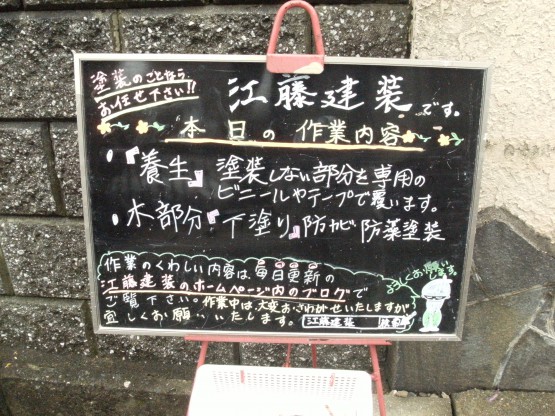 塗装のことなら
お任せ下さい!!
江藤建装です。
本日の作業内容
・『養生』塗装しない部分を専用の
ビニールやテープで覆います。
・木部分『下塗り』防カビ防藻塗装
作業のくわしい内容は、毎日更新の
江藤建装のホームページ内のブログで
ご覧下さい。作業中は、大変おさわがせいたしますが
宜しくお願いいたします。
江藤建装
よろしくお願いします。